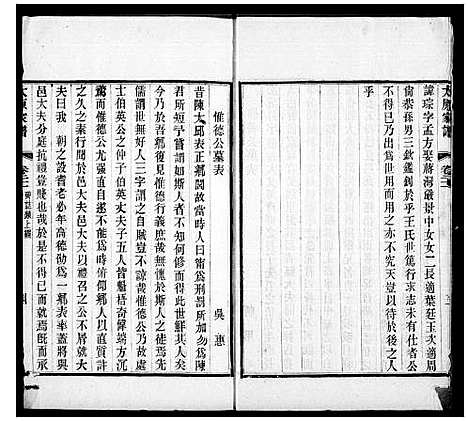 太原家譜
卷二
諱琮字孟方娶蔣河嚴景中女女二長適葉廷玉次適周
倫恭孫男三欽鑑鈞於乎王氏世篤行求志未有仕者公
諱不得已乃出為世用而亦不究天意以待於後之人
乎
惟德公墓表
吳惠
昔陳太邱表正鄉閭故當時人曰甯為刑罰所加勿為陳
君所短予嘗謂如斯人者不知何修而得此世鮮其人矣
不意吾鄉復見惟德公惟德行義庶不媿於斯人之徒焉先
儒謂世人非笑三字謂之自賊豈不諒哉惟德公乃故處
士伯英公之仲子伯英丈夫子五人皆魁梧奇偉端方沉
鷙而惟德公尤强直自遂不能為時俯仰鄉人以直質許
之久之奏行於邑大夫邑大夫以禮召之公不屑就
夫曰我 朝之設耆老必年高德劭為一鄉表率蓋將與
邑大夫分庭抗禮豈賤也哉於是不得已而就焉既而承
太原家譜
卷二